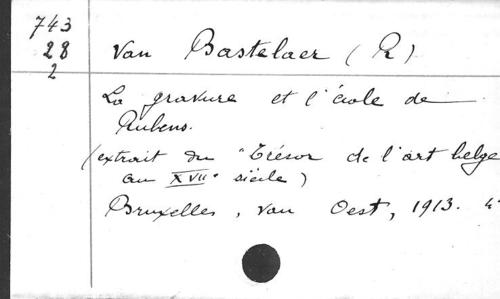 743
28
2
Van Bastelaer (R)
La gravure et l'école de
Rubens.
(extrait du "Trésor de l'art belge
au XVIIe siècle)
Bruxelles, van Oest, 1913. 4°